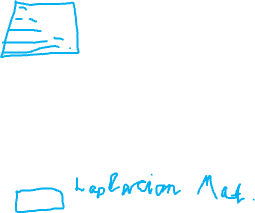 Laplacian Mat.